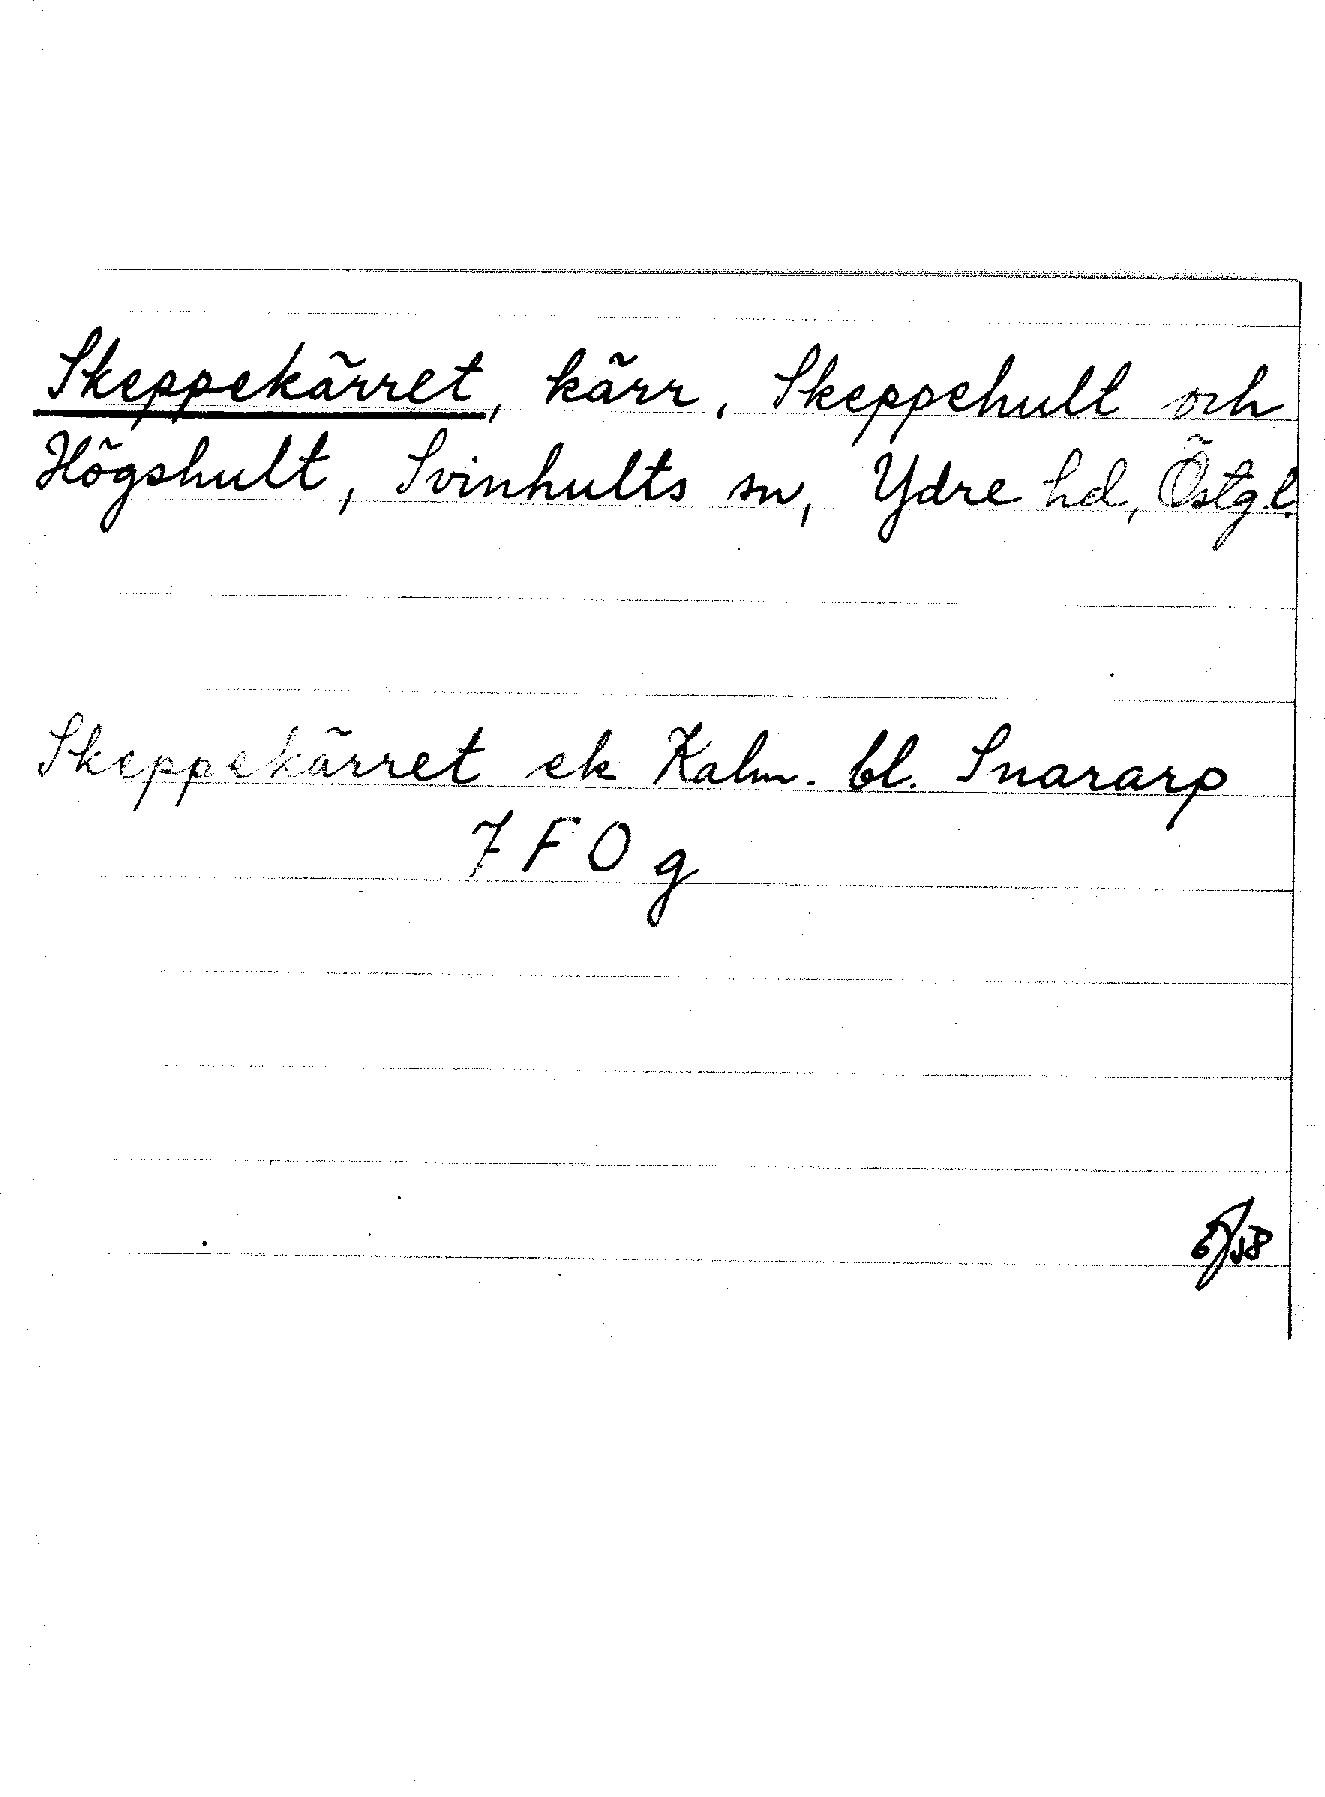 Skeppekärret, kärr, Skeppehult och
Högshult, Svinhults sn, Ydre hd, Östg.l.
Skeppekärret ek Kalm. bl. Snararp
7 F O g